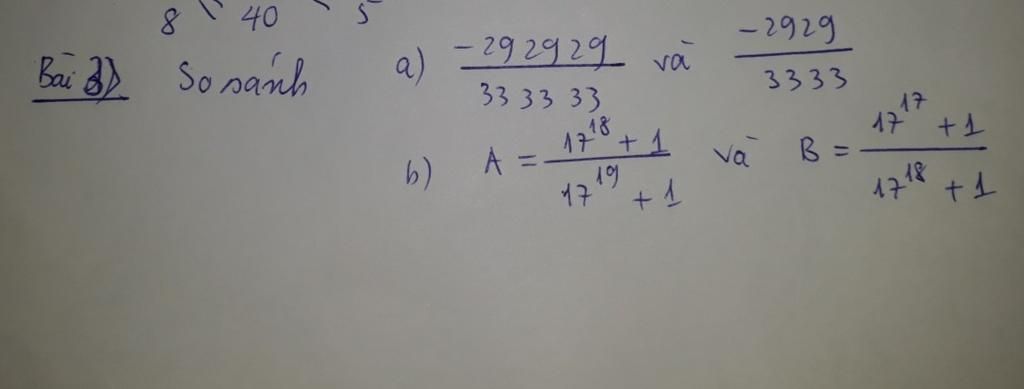 8 40 5
Bài 3) So sánh a) \frac{-292929}{333333} và \frac{-2929}{3333}
b) A = \frac{17^{18} + 1}{17^{19} + 1} và B = \frac{17^{17} + 1}{17^{18} + 1}